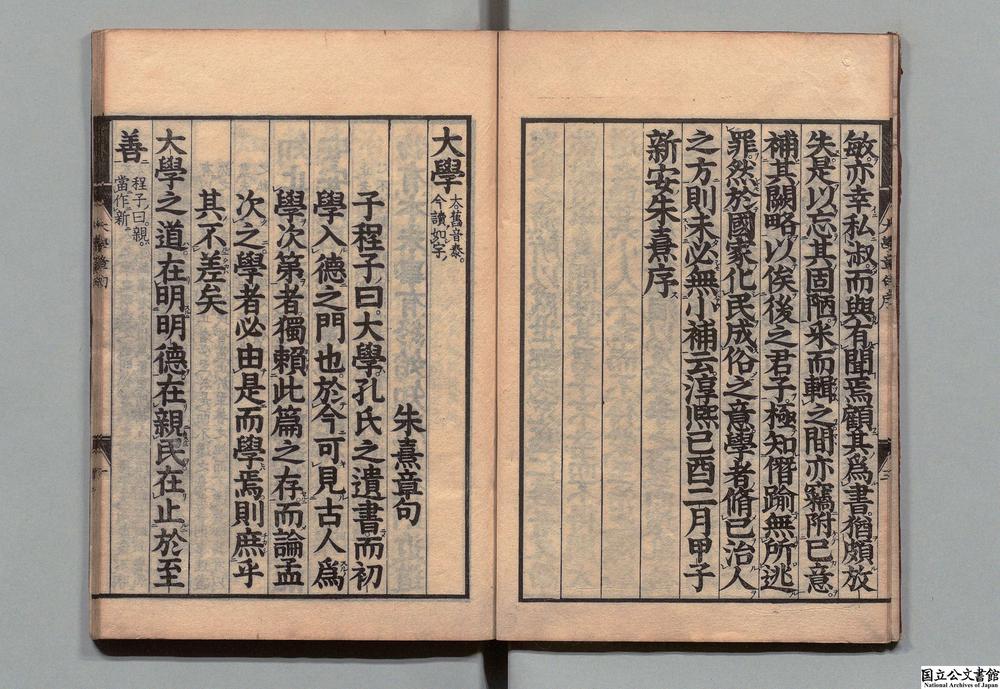 敏亦幸私淑而與有聞焉顧其爲書猶頗放
失是以忘其固陋釆而輯之間亦竊附己意
補其闕略以俟後之君子極知僭踰無所逃
罪然於國家化民成俗之意學者脩己治人
之方則未必無小補云淳熈己酉二月甲子
新安朱熹序
大學
大舊音泰
今讀如字
朱熹章句
子程子曰大學孔氏之遺書而初
學入德之門也於今可見古人爲
學次第者獨賴此篇之存而論孟
次之學者必由是而學焉則庶乎
其不差矣
大學之道在明明德在親民在止於至
善
程子曰親
當作新
国立公文書館
National Archives of Japan